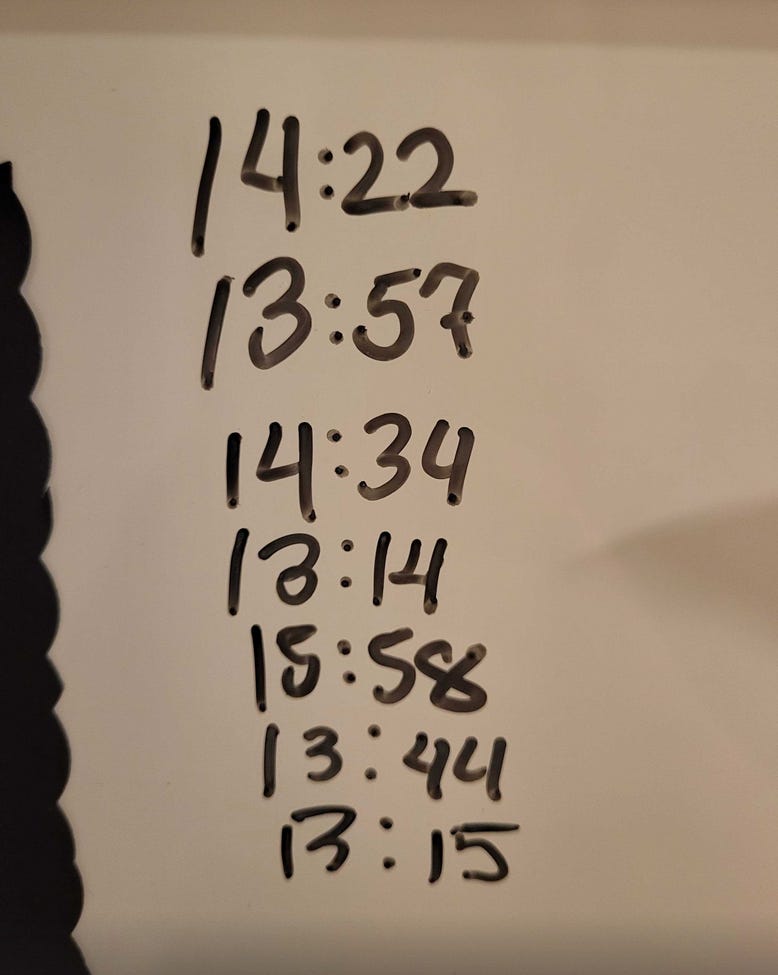 14:22
13:57
14:34
13:14
15:58
13:44
13:15